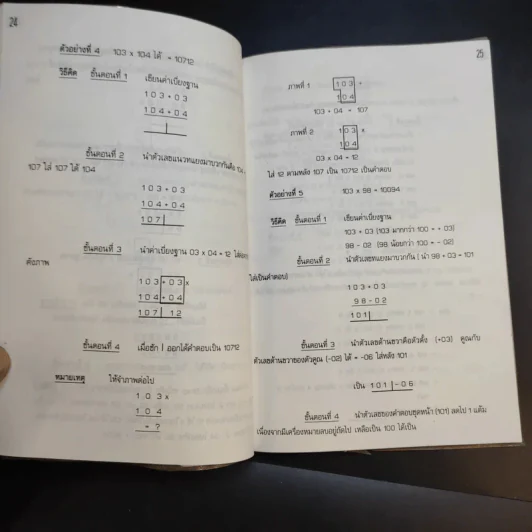 24
ตัวอย่างที่ 4 103 x 104 ได้ = 10712
วิธีคิด ขั้นตอนที่ 1 เขียนค่าเบี่ยงฐาน
103+03
104+04
ขั้นตอนที่ 2 นำตัวเลขแนวทแยงมาบวกกันคือ
107 ใส่ 107 ใต้ 104
103+03
104+04
107|
ขั้นตอนที่ 3 นำค่าเบี่ยงฐาน 03 x 04 = 12
ดังภาพ
103+03x
104+04
107|12
ขั้นตอนที่ 4 เมื่อชัก | ออกได้คำตอบเป็น 10712
หมายเหตุ ให้จำภาพต่อไป
103x
104
= ?
25
ภาพที่ 1 103+
104
103 + 04 = 107
ภาพที่ 2 103x
104
03 x 04 = 12
ใส่ 12 ตามหลัง 107 เป็น 10712 เป็นคำตอบ
ตัวอย่างที่ 5 103 x 98 = 10094
วิธีคิด ขั้นตอนที่ 1 เขียนค่าเบี่ยงฐาน
103 + 03 (103 มากกว่า 100 = + 03)
98 - 02 (98 น้อยกว่า 100 = - 02)
ขั้นตอนที่ 2 นำตัวเลขทแยงมาบวกกัน ( นำ 98 + 03 = 101
ใส่เป็นคำตอบ)
103+03
98-02
101|
ขั้นตอนที่ 3 นำตัวเลขด้านขวาคือตัวตั้ง (+03) คูณกับ
ตัวเลขด้านขวาของตัวคูณ (-02) ได้ = -06 ใส่หลัง 101
เป็น 101|-06
ขั้นตอนที่ 4 นำตัวเลขของคำตอบชุดหน้า (101) ลดไป 1 แต้ม
เนื่องจากมีเครื่องหมายลบอยู่ถัดไป เหลือเป็น 100 ได้เป็น